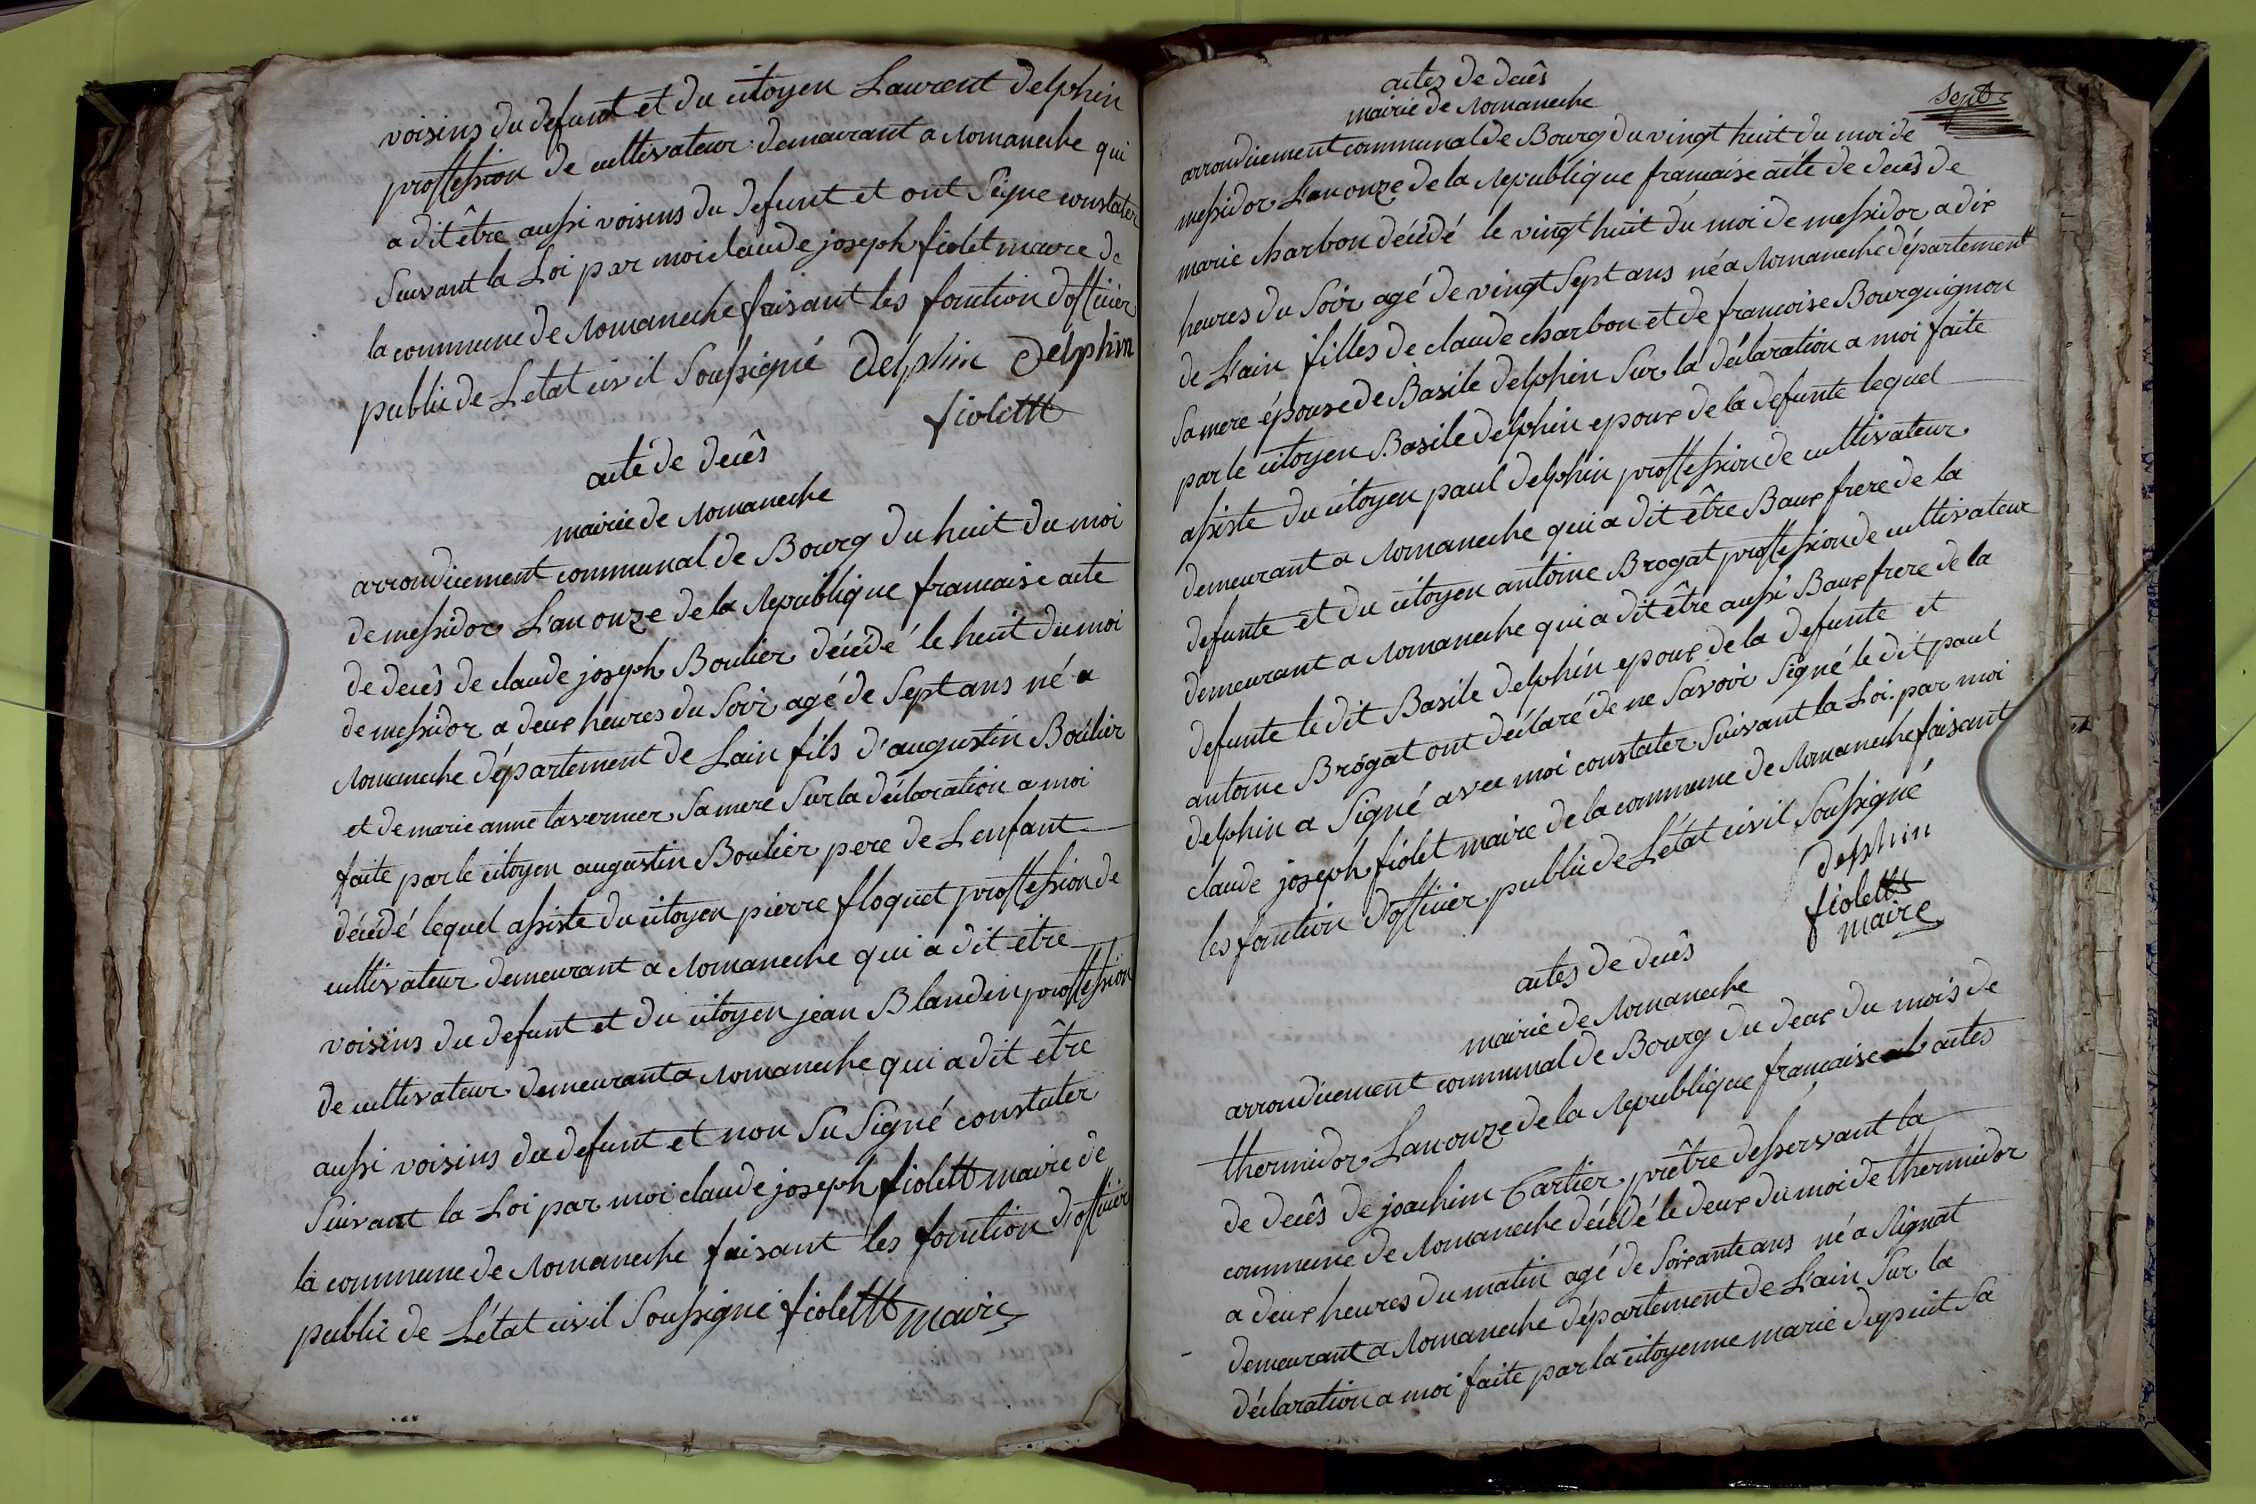 voisins du defunt et du citoyen Laurent delphin
proffession de cultivateur demeurant a Romaneche qui
a dit être aussi voisins du defunt et ont Signe constater
Suivant la Loi par moi claude joseph fiolet maire de
la commune de Romaneche faisant les fonction dofficier
public de Letat civil Soussigné delphin delphin
fiolettt
acte de decês
mairie de Romaneche
arrondicement communal de Bourg du huit du moi
de messidor L'an onze de la Republique francaise acte
de decês de claude joseph Boulier décédé le huit du moi
de messidor a deux heures du Soir agé de Sept ans né a
Romaneche département de Lain fils d'augustin Boulier
et de marie anne tavernier Sa mere Sur la déclaration a moi
faite par le citoyen augustin Boulier pere de L'enfant
décédé lequel assiste du citoyen pierre floquet proffession de
cultivateur demeurant a Romaneche qui a dit etre
voisins du defunt et du citoyen jean Blandin proffession
de cultivateur demeurant a Romaneche qui a dit être
aussi voisins du defunt et non Su Signé constater
Suivant la Loi par moi claude joseph fiolettt maire de
la commune de Romaneche faisant les fonction d'officier
public de L'état civil Soussigné fiolettt maire
actes de decês
mairie de Romaneche
Sept
arrondicement communal de Bourg du vingt huit du moi de
messidor L'an onze de la Republique francaise acte de decês de
marie charbon décédé le vingt huit du moi de messidor a dix
heures du Soir agé de vingt Sept ans né a Romaneche département
de L'ain filles de claude charbon et de francoise Bourguignon
Sa mere épouse de Basile delphin Sur la déclaration a moi faite
par le citoyen Basile delphin epoux de la defunte lequel
assiste du citoyen paul delphin proffession de cultivateur
demeurant a Romaneche qui a dit être Baux frere de la
defunte et du citoyen antoine Brogat proffession de cultivateur
demeurant a Romaneche qui a dit être aussi Baux frere de la
defunte le dit Basile delphin epoux de la defunte et
antoine Brogat ont déclaré de ne Savoir Signé le dit paul
delphin a Signé avec moi constater Suivant la Loi par moi
claude joseph fiolet maire de la commune de Romaneche faisant
les fonction d'officier public de L'état civil Soussigné
delphin
fiolettt
maire
actes de decês
mairie de Romaneche
arrondicement communal de Bourg du deux du mois de
thermidor L'an onze de la Republique francaise actes
de decês de joachim Cartier prêtre desservant la
commune de Romaneche décédé le deux du moi de thermidor
a deux heures du matin agé de Soixante ans né a Rignat
demeurant a Romaneche département de L'ain Sur la
déclaration a moi faite par la citoyenne marie dupuit Sa